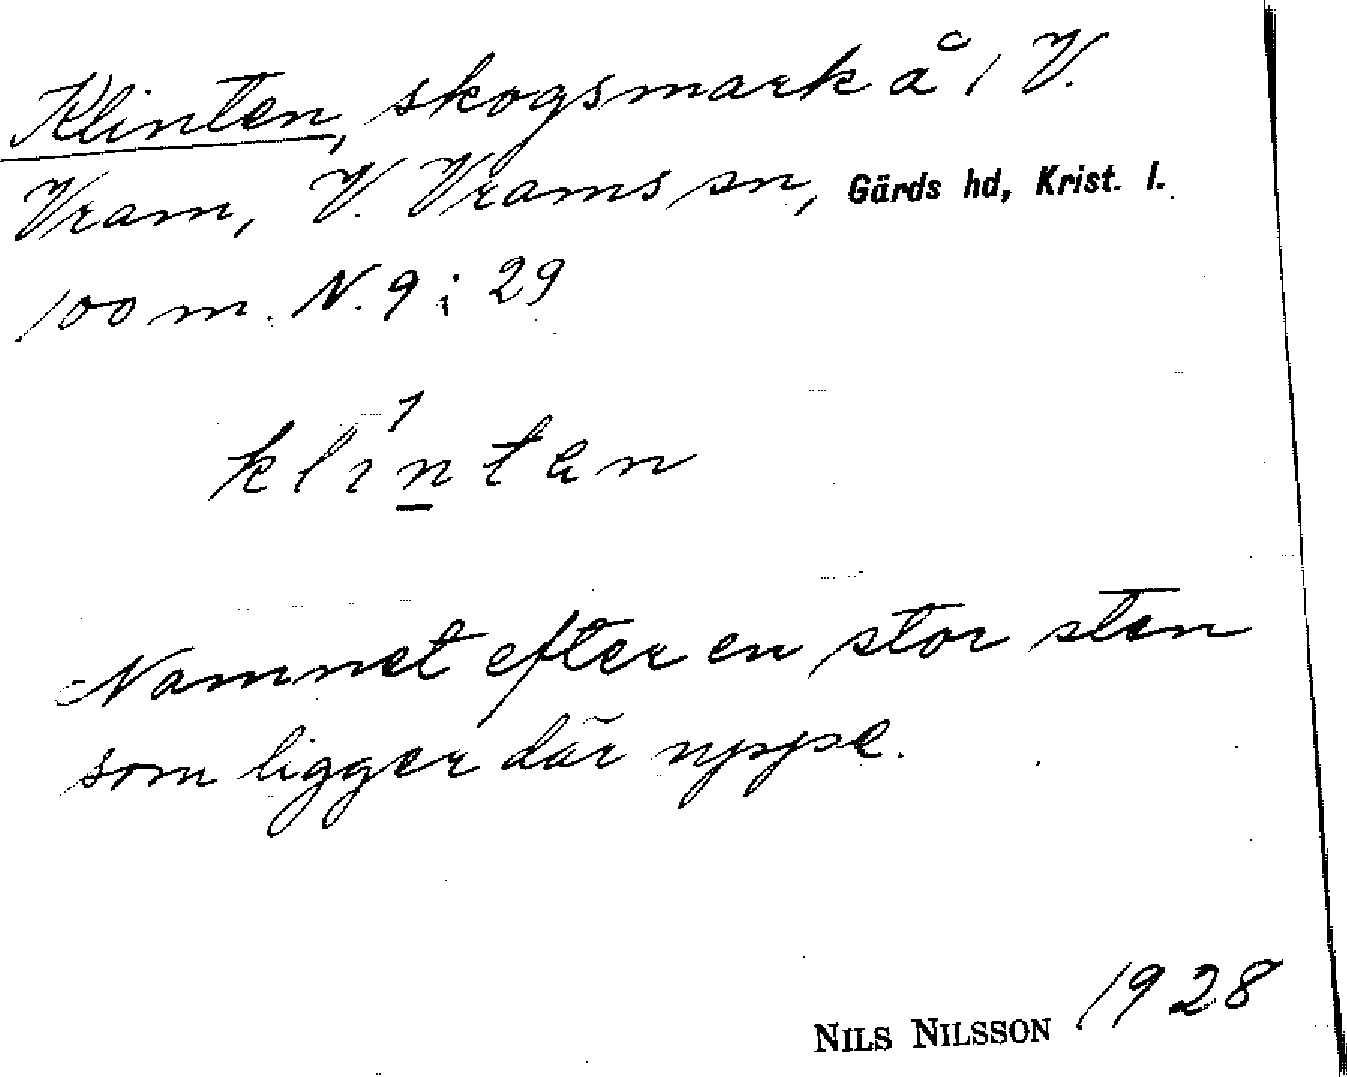 Klinten, skogsmark å 1 V.
Vram, V. Vrams sn, Gärds hd, Krist. l.
100 m. N. 9 i 29
klinten
Namnet efter en stor sten
som ligger där uppe.
NILS NILSSON 1928